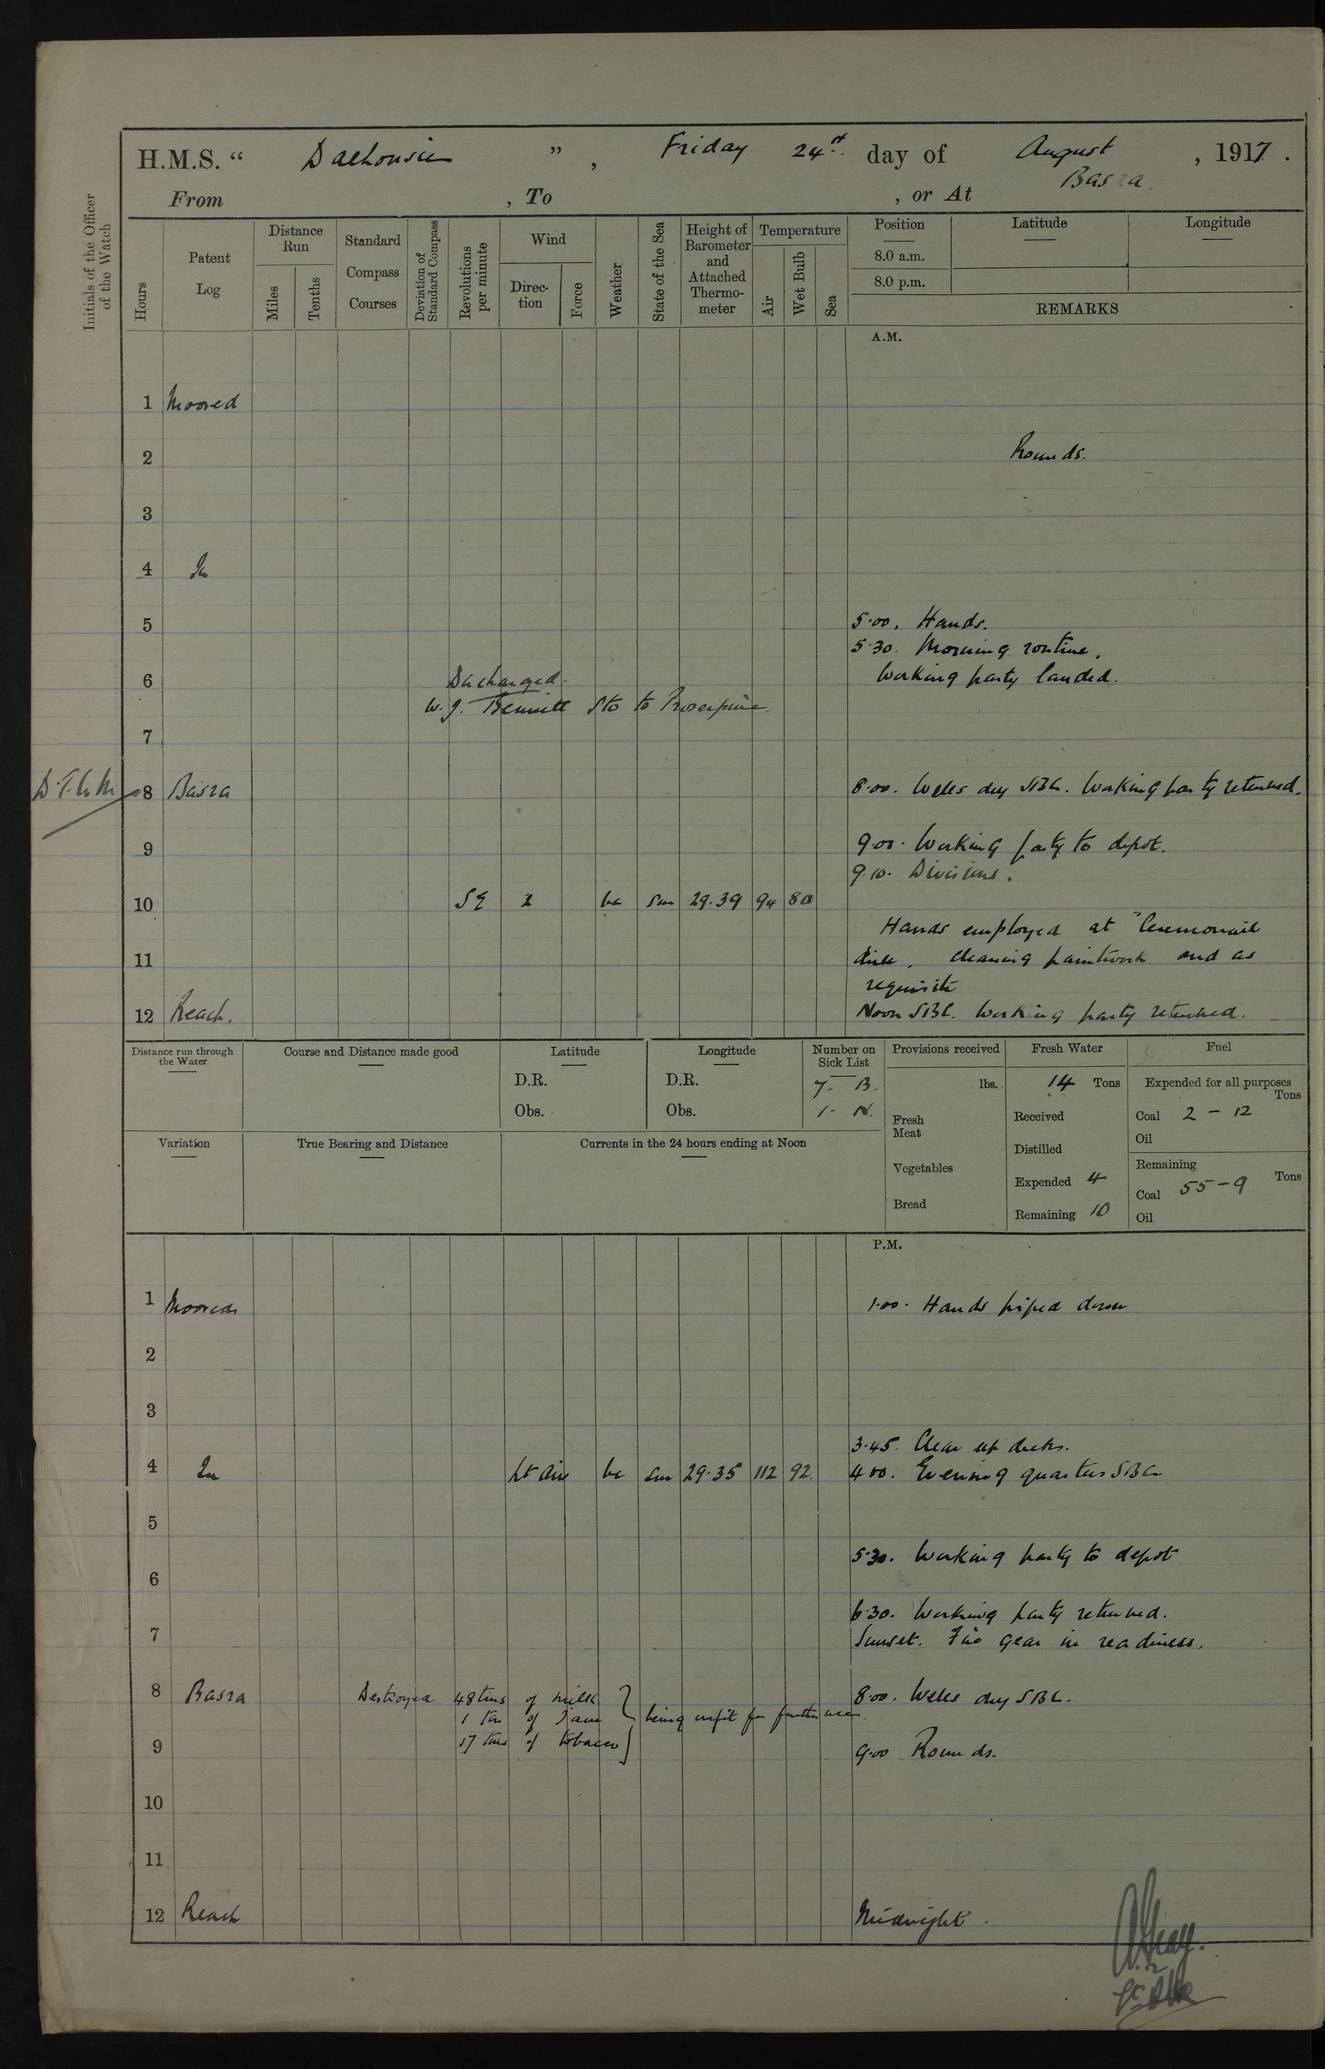 H.M.S. “ Dalhousie ” , Friday 24th day of August , 1917 .
From , To , or At Basra
Initials of the Officer of the Watch
Hours
Patent Log
Distance Run
Miles
Tenths
Standard Compass Courses
Deviation of Standard Compass
Revolutions per minute
Wind
Direction
Force
Weather
State of the Sea
Height of Barometer and Attached Thermometer
Temperature
Air
Wet Bulb
Sea
Position
Latitude
Longitude
8.0 a.m.
8.0 p.m.
REMARKS
A.M.
1 Moored
2 Rounds.
3
4 In
5 5.00. Hands.
5.30. Morning routine.
6 Working party landed.
Discharged.
W. J. Bennett Sto to Proserpine
7
8 Basra 8.00. Weles dey SBC. Working party returned.
9 9.00. Working party to depot.
9.10. Divisions.
10 SE 2 bc Sm 29.39 94 80
Hands employed at Ceremonial
11 drill, cleaning paintwork and as
requisite
12 Reach. Noon SBC. Working party returned.
Distance run through the Water
Course and Distance made good
Latitude
D.R.
Obs.
Longitude
D.R.
Obs.
Number on Sick List
7 - B.
1 - N.
Provisions received
lbs.
Fresh Meat
Vegetables
Bread
Fresh Water
14 Tons
Received
Distilled
Expended 4
Remaining 10
Fuel
Expended for all purposes
Tons
Coal 2 - 12
Oil
Remaining
Tons
Coal 55 - 9
Oil
Variation
True Bearing and Distance
Currents in the 24 hours ending at Noon
P.M.
1 Moored 1.00. Hands piped down
2
3
3.45. Clear up decks.
4 In Lt air bc Sm 29.35 112 92 4.00. Evening quarters SBC
5
5.30. Working party to depot
6
6.30. Working party returned.
7 Sunset. Fire gear in readiness.
8 Basra Destroyed 48 tins of milk 8.00. Weles dey SBC.
1 tin of Jam being unfit for further use.
17 tins of tobacco
9 9.00 Rounds.
10
11
12 Reach Midnight.